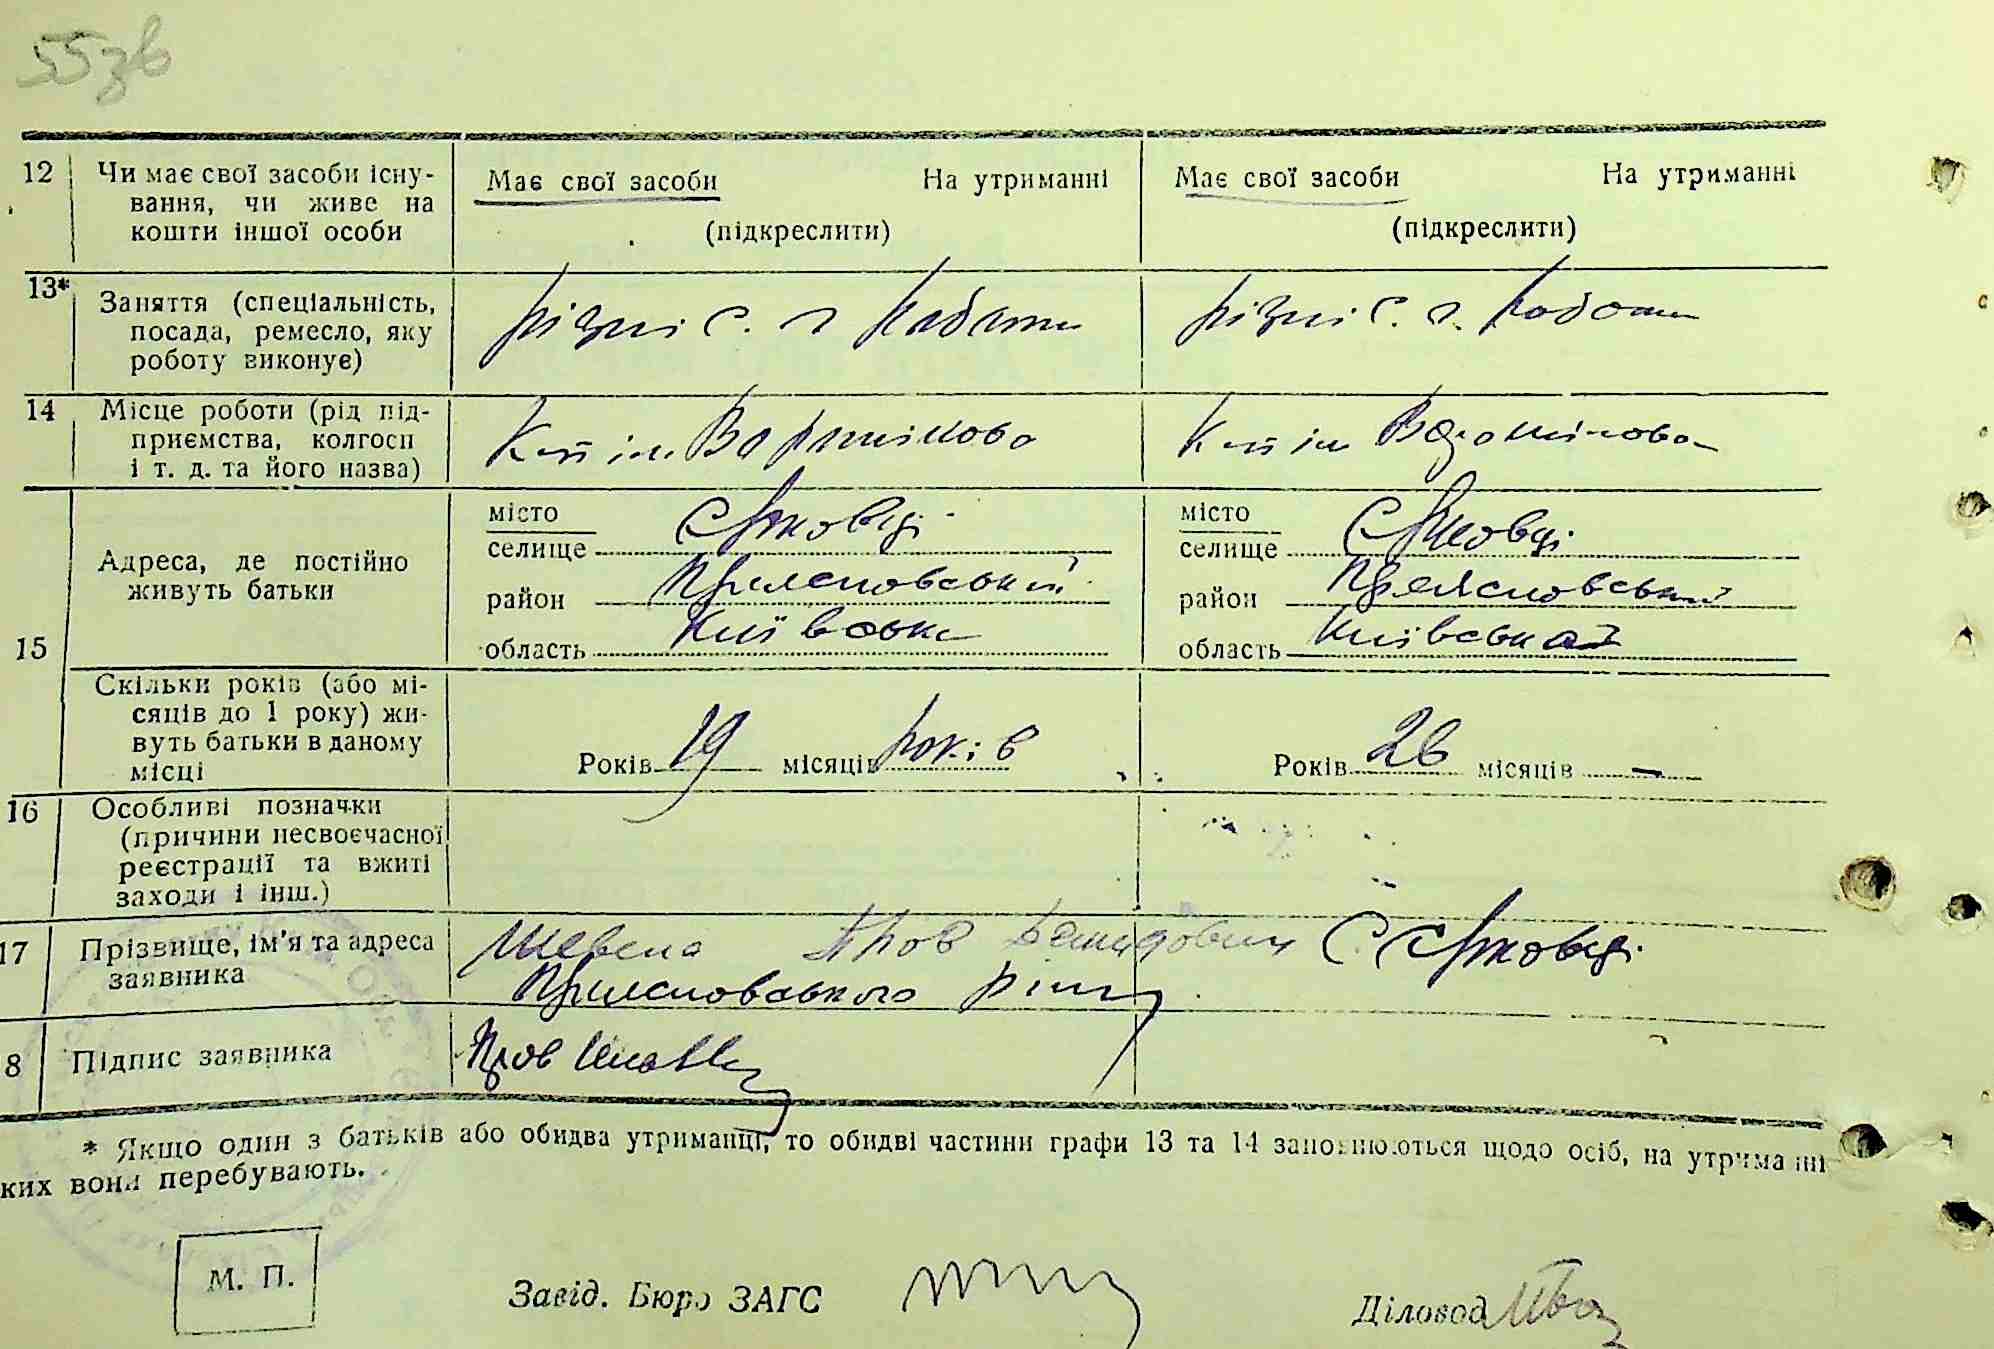 55зв
12 Чи має свої засоби існу-
вання, чи живе на
кошти іншої особи
Має свої засоби На утриманні
(підкреслити)
Має свої засоби На утриманні
(підкреслити)
13* Заняття (спеціальність,
посада, ремесло, яку
роботу виконує)
різні с. г роботи
різні с. г. роботи
14 Місце роботи (рід під-
приємства, колгосп
і т. д. та його назва)
К-п ім Ворошилова
К-п ім Ворошилова
15 Адреса, де постійно
живуть батьки
місто
селище
район
область Київська
місто
селище
район
область Київська
Скільки років (або мі-
сяців до 1 року) жи-
вуть батьки в даному
місці
Років 19 місяців років
Років 26 місяців –
16 Особливі позначки
(причини несвоєчасної
реєстрації та вжиті
заходи і інш.)
17 Прізвище, ім'я та адреса
заявника
Пров Демидович С.
8 Підпис заявника
Пров
* Якщо один з батьків або обидва утриманці, то обидві частини графи 13 та 14 заповнюються щодо осіб, на утриманні
ких вони перебувають.
М. П.
Завід. Бюро ЗАГС
Діловод